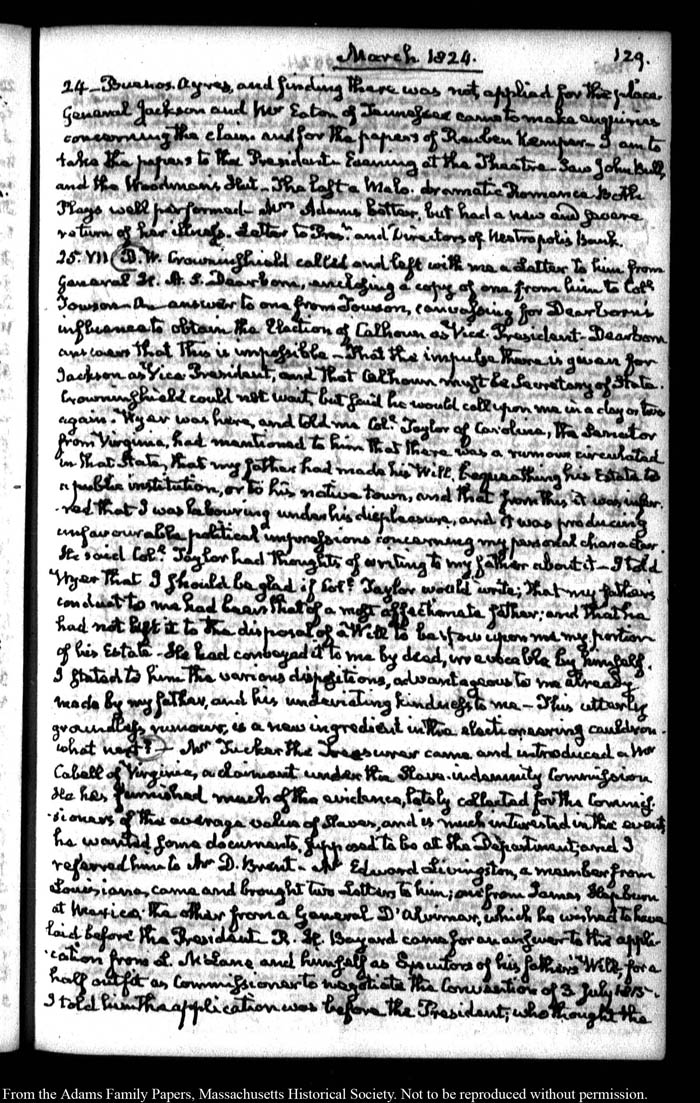 March 1824.
129.
24_ Buenos. Ayres, and finding there was not applied for the place
General Jackson and Mr Eaton of Tennessee came to make enquiries
concerning the claim and for the papers of Reuben Kemper_ I am to
take the papers to the President_ Evening at the Theatre_ Saw John Bull,
and the Woodman's Hut_ The last a Melo. dramatic Romance Both
Plays well performed_ Mrs Adams better, but had a new and severe
return of her illness. Letter to Presn and Directors of Metropolis Bank.
25. VII B. W. Crowninshield called and left with me a Letter to him from
General H. A. S. Dearborn, enclosing a copy of one from him to Coll
Towson_ An answer to one from Towson, canvassing for Dearborn's
influence to obtain the Election of Calhoun as Vice-President_ Dearborn
answers that this is impossible_ That the impulse there is given for
Jackson as Vice President, and that Calhoun must be Secretary of State.
Crowninshield could not wait, but said he would call upon me in a day or two
again_ Wyer was here, and told me Coll Taylor of Carolina, the Senator
from Virginia, had mentioned to him that there was a rumour circulated
in that State, that my father had made his Will, bequeathing his Estate to
a public institution, or to his native town, and that from this it was infer-
-red that I was labouring under his displeasure, and it was producing
unfavourable political impressions concerning my personal character.
He said Coll Taylor had thoughts of writing to my father about it_ I told
Wyer that I should be glad if Coll Taylor would write; that my father's
conduct to me had been that of a most affectionate father; and that he
had not left it to the disposal of a Will to bestow upon me my portion
of his Estate_ He had conveyed it to me by deed, irrevocable by himself.
I stated to him the various dispositions, advantageous to me already
made by my father, and his undeviating kindness to me_ This utterly
groundless rumour, is a new ingredient in the electioneering cauldron.
what next?_ Mr Tucker the Treasurer came and introduced a Mr
Cabell of Virginia, a claimant under the Slave-indemnity Commission
He has furnished much of the evidence, lately collected for the Commis-
-sioners of the average value of Slaves, and is much interested in the event,
he wanted some documents, supposed to be at the Department; and I
referred him to Mr D. Brent_ Mr Edward Livingston, a member from
Louisiana, came and brought two Letters to him; one from James
at Mexico, the other from a General D'Alvimar, which he wished to have
laid before the President_ R. H. Bayard came for an answer to the appli-
-cation from L. McLane and himself as Executors of his father's Will, for a
half outfit as Commissioner to negotiate the Convention of 3 July 1815_
I told him the application was before the President; who thought the
From the Adams Family Papers, Massachusetts Historical Society. Not to be reproduced without permission.